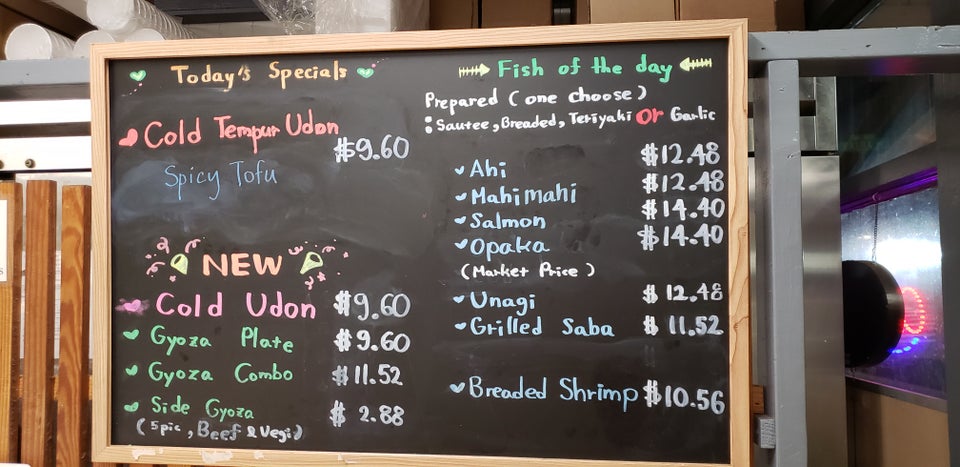 Today's Specials
Cold Tempur Udon $9.60
Spicy Tofu
NEW
Cold Udon $9.60
Gyoza Plate $9.60
Gyoza Combo $11.52
Side Gyoza $ 2.88
(5pic, Beef & Vegi)
Fish of the day
Prepared (one choose)
: Sautee, Breaded, Teriyaki or Garlic
Ahi $12.48
Mahimahi $12.48
Salmon $14.40
Opaka $14.40
(Market Price)
Unagi $12.48
Grilled Saba $11.52
Breaded Shrimp $10.56